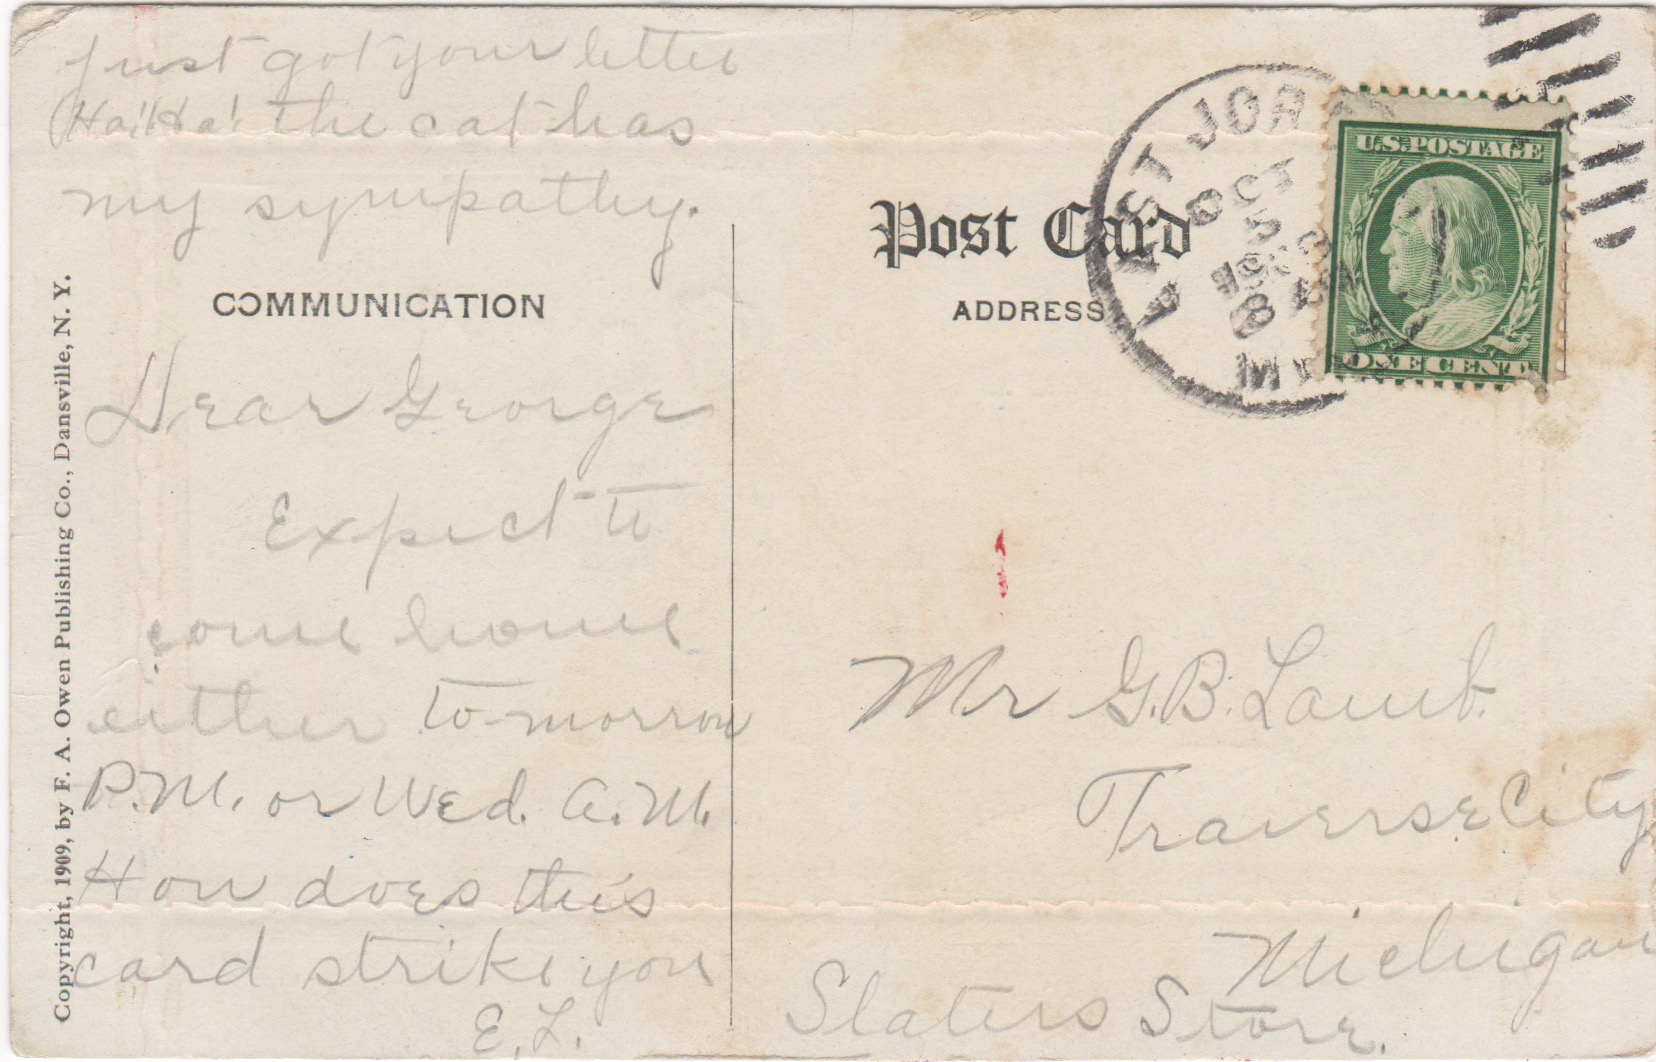 Just got your letter
Ha! Ha! the cat has
my sympathy.
COMMUNICATION
Dear George
Expect to
come home
either to-morrow
P.M. or Wed. A.M.
How does this
card strike you
E. L.
Copyright, 1909, by F. A. Owen Publishing Co., Dansville, N. Y.
Post Card
ADDRESS
EAST JOR
OCT
5
8
MICH
U.S. POSTAGE
ONE CENT
Mr G. B. Lamb.
Traverse City
Michigan
Slaters Store.